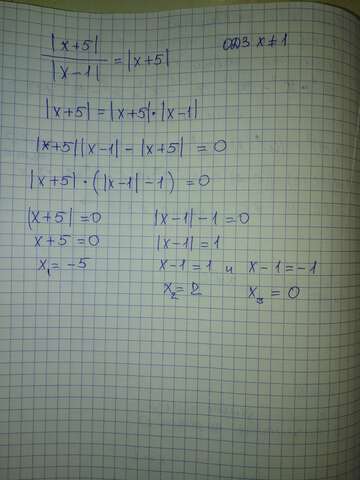 |x+5| / |x-1| = |x+5| ОДЗ x≠1
|x+5| = |x+5|·|x-1|
|x+5||x-1| - |x+5| = 0
|x+5|·(|x-1|-1) = 0
|x+5| = 0 |x-1|-1=0
x+5=0 |x-1|=1
x₁=-5 x-1=1 и x-1=-1
x₂=2 x₃=0